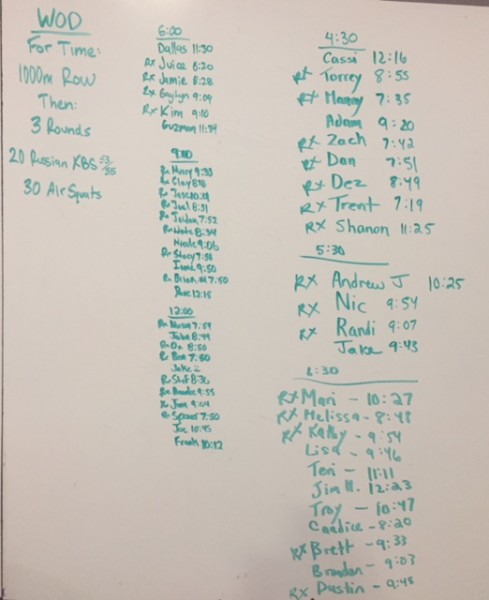 WOD
For Time:
1000m Row
Then:
3 Rounds
20 Russian KBS 53/35
30 Air Squats
6:00
Dallas 11:30
Rx Juice 8:20
Rx Jamie 8:28
Rx Gaylyn 9:09
Rx Kim 9:10
Guzman 11:74
9:00
Rx Mary 9:33
Rx Clay
Rx
Rx Joel 8:31
Rx Jordan 7:52
Rx Nate 8:34
Nicole 9:06
Rx Stacy 7:58
9:50
Rx Brian M 7:50
12:15
12:00
Rx 7:59
8:44
Rx 8:50
Rx Ben 7:50
Jake
Rx Stef 8:36
Rx 9:55
Rx 9:04
Rx Spencer 7:50
Joe 10:45
Frank 10:12
4:30
Cassi 12:16
Rx Torrey 8:55
Rx Manny 7:35
Adam 9:20
Rx Zach 7:42
Rx Dan 7:51
Rx Dez 8:49
Rx Trent 7:19
RX Shanon 11:25
5:30
RX Andrew J 10:25
RX Nic 9:54
RX Randi 9:07
Jake 9:43
6:30
RX Mari - 10:27
RX Melissa - 8:48
RX Kathy - 9:54
Lisa - 9:46
Teri - 11:11
Jim H. - 12:23
Troy - 10:47
Candice - 8:20
RX Brett - 9:33
Brandon - 9:03
RX Dustin - 9:45